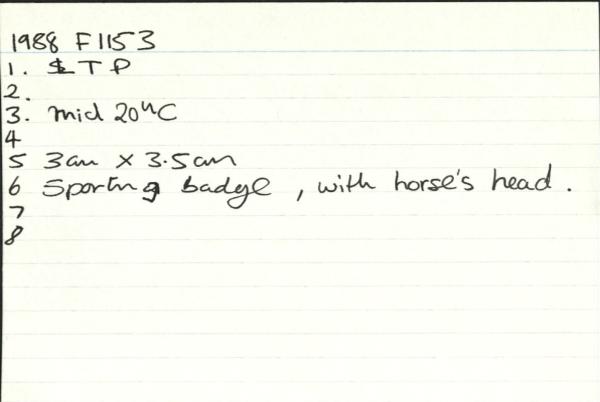 1988 F1153
1. LTP
2.
3. mid 20thC
4
5 3cm x 3.5cm
6 Sporting badge, with horse's head.
7
8